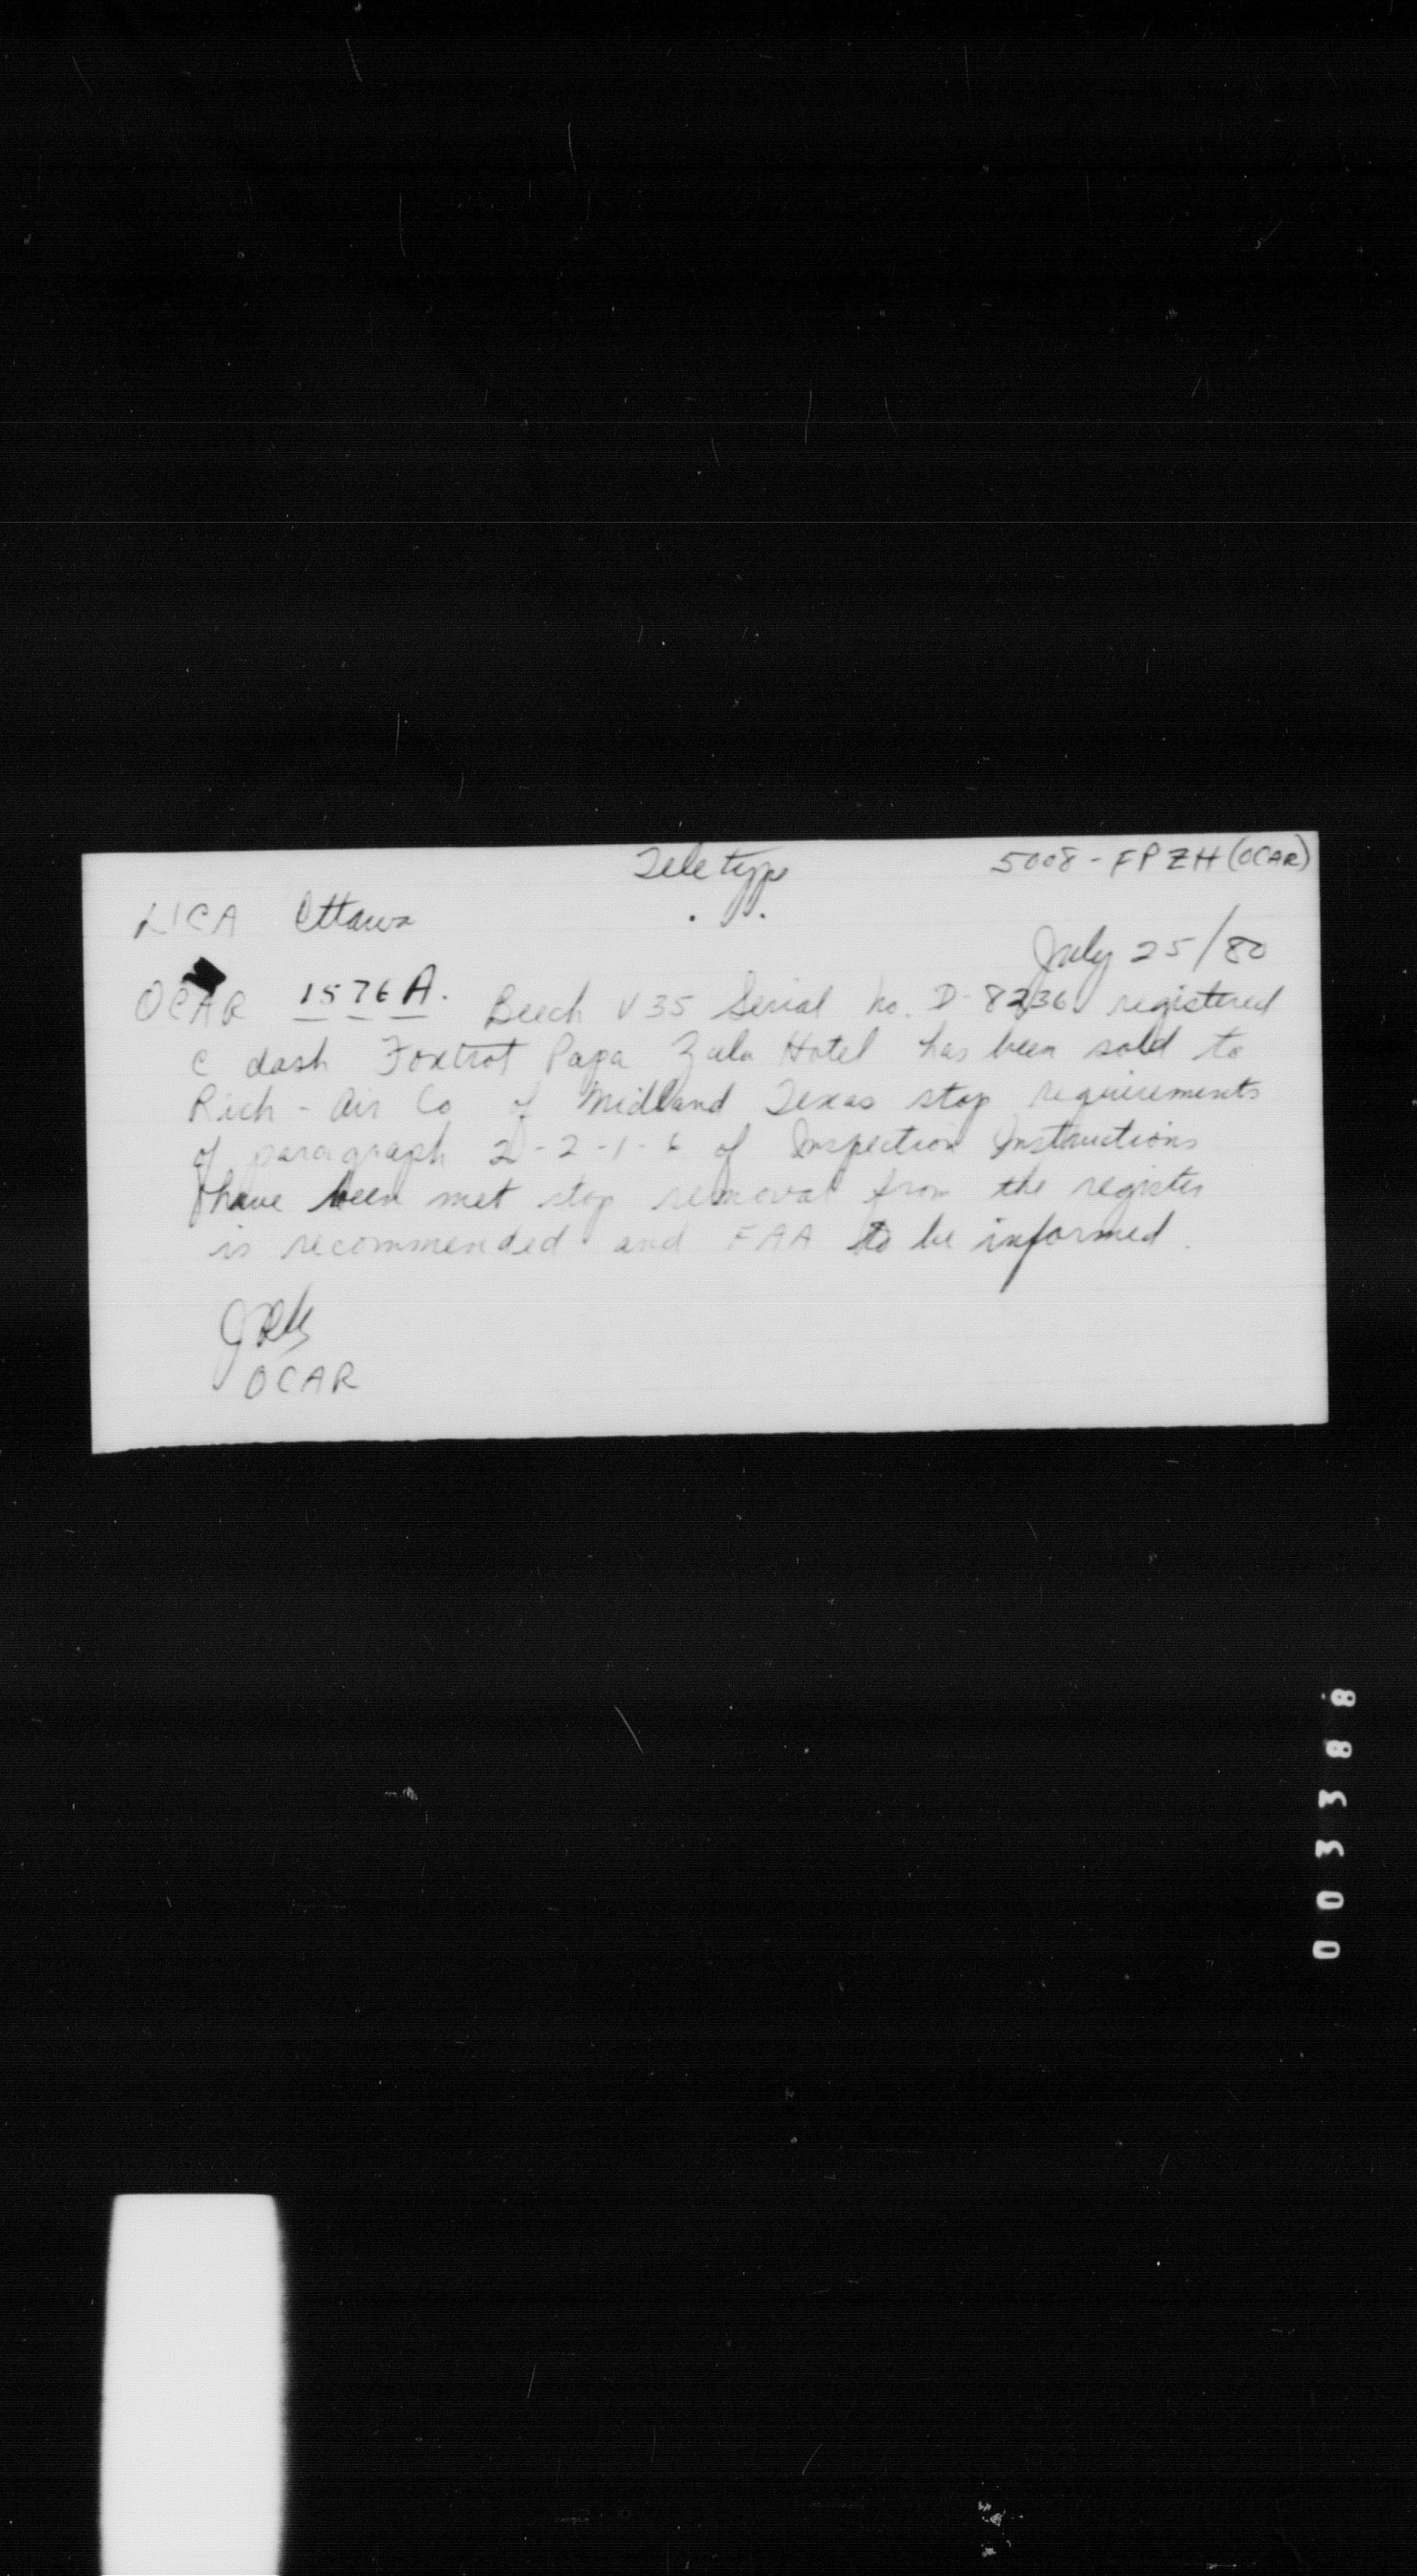 Teletype 5008-FPZH (OCAR)
Ottawa
July 25/80
OCAR 1576A. Beech V35 Serial no. D-8236 registered
C dash Foxtrot Papa Zulu Hotel has been sold to
Rich-Air Co of Midland Texas stop requirements
of paragraph 2-2-1-6 of Inspection Instructions
have been met stop removal from the register
is recommended and FAA to be informed.
OCAR
003388